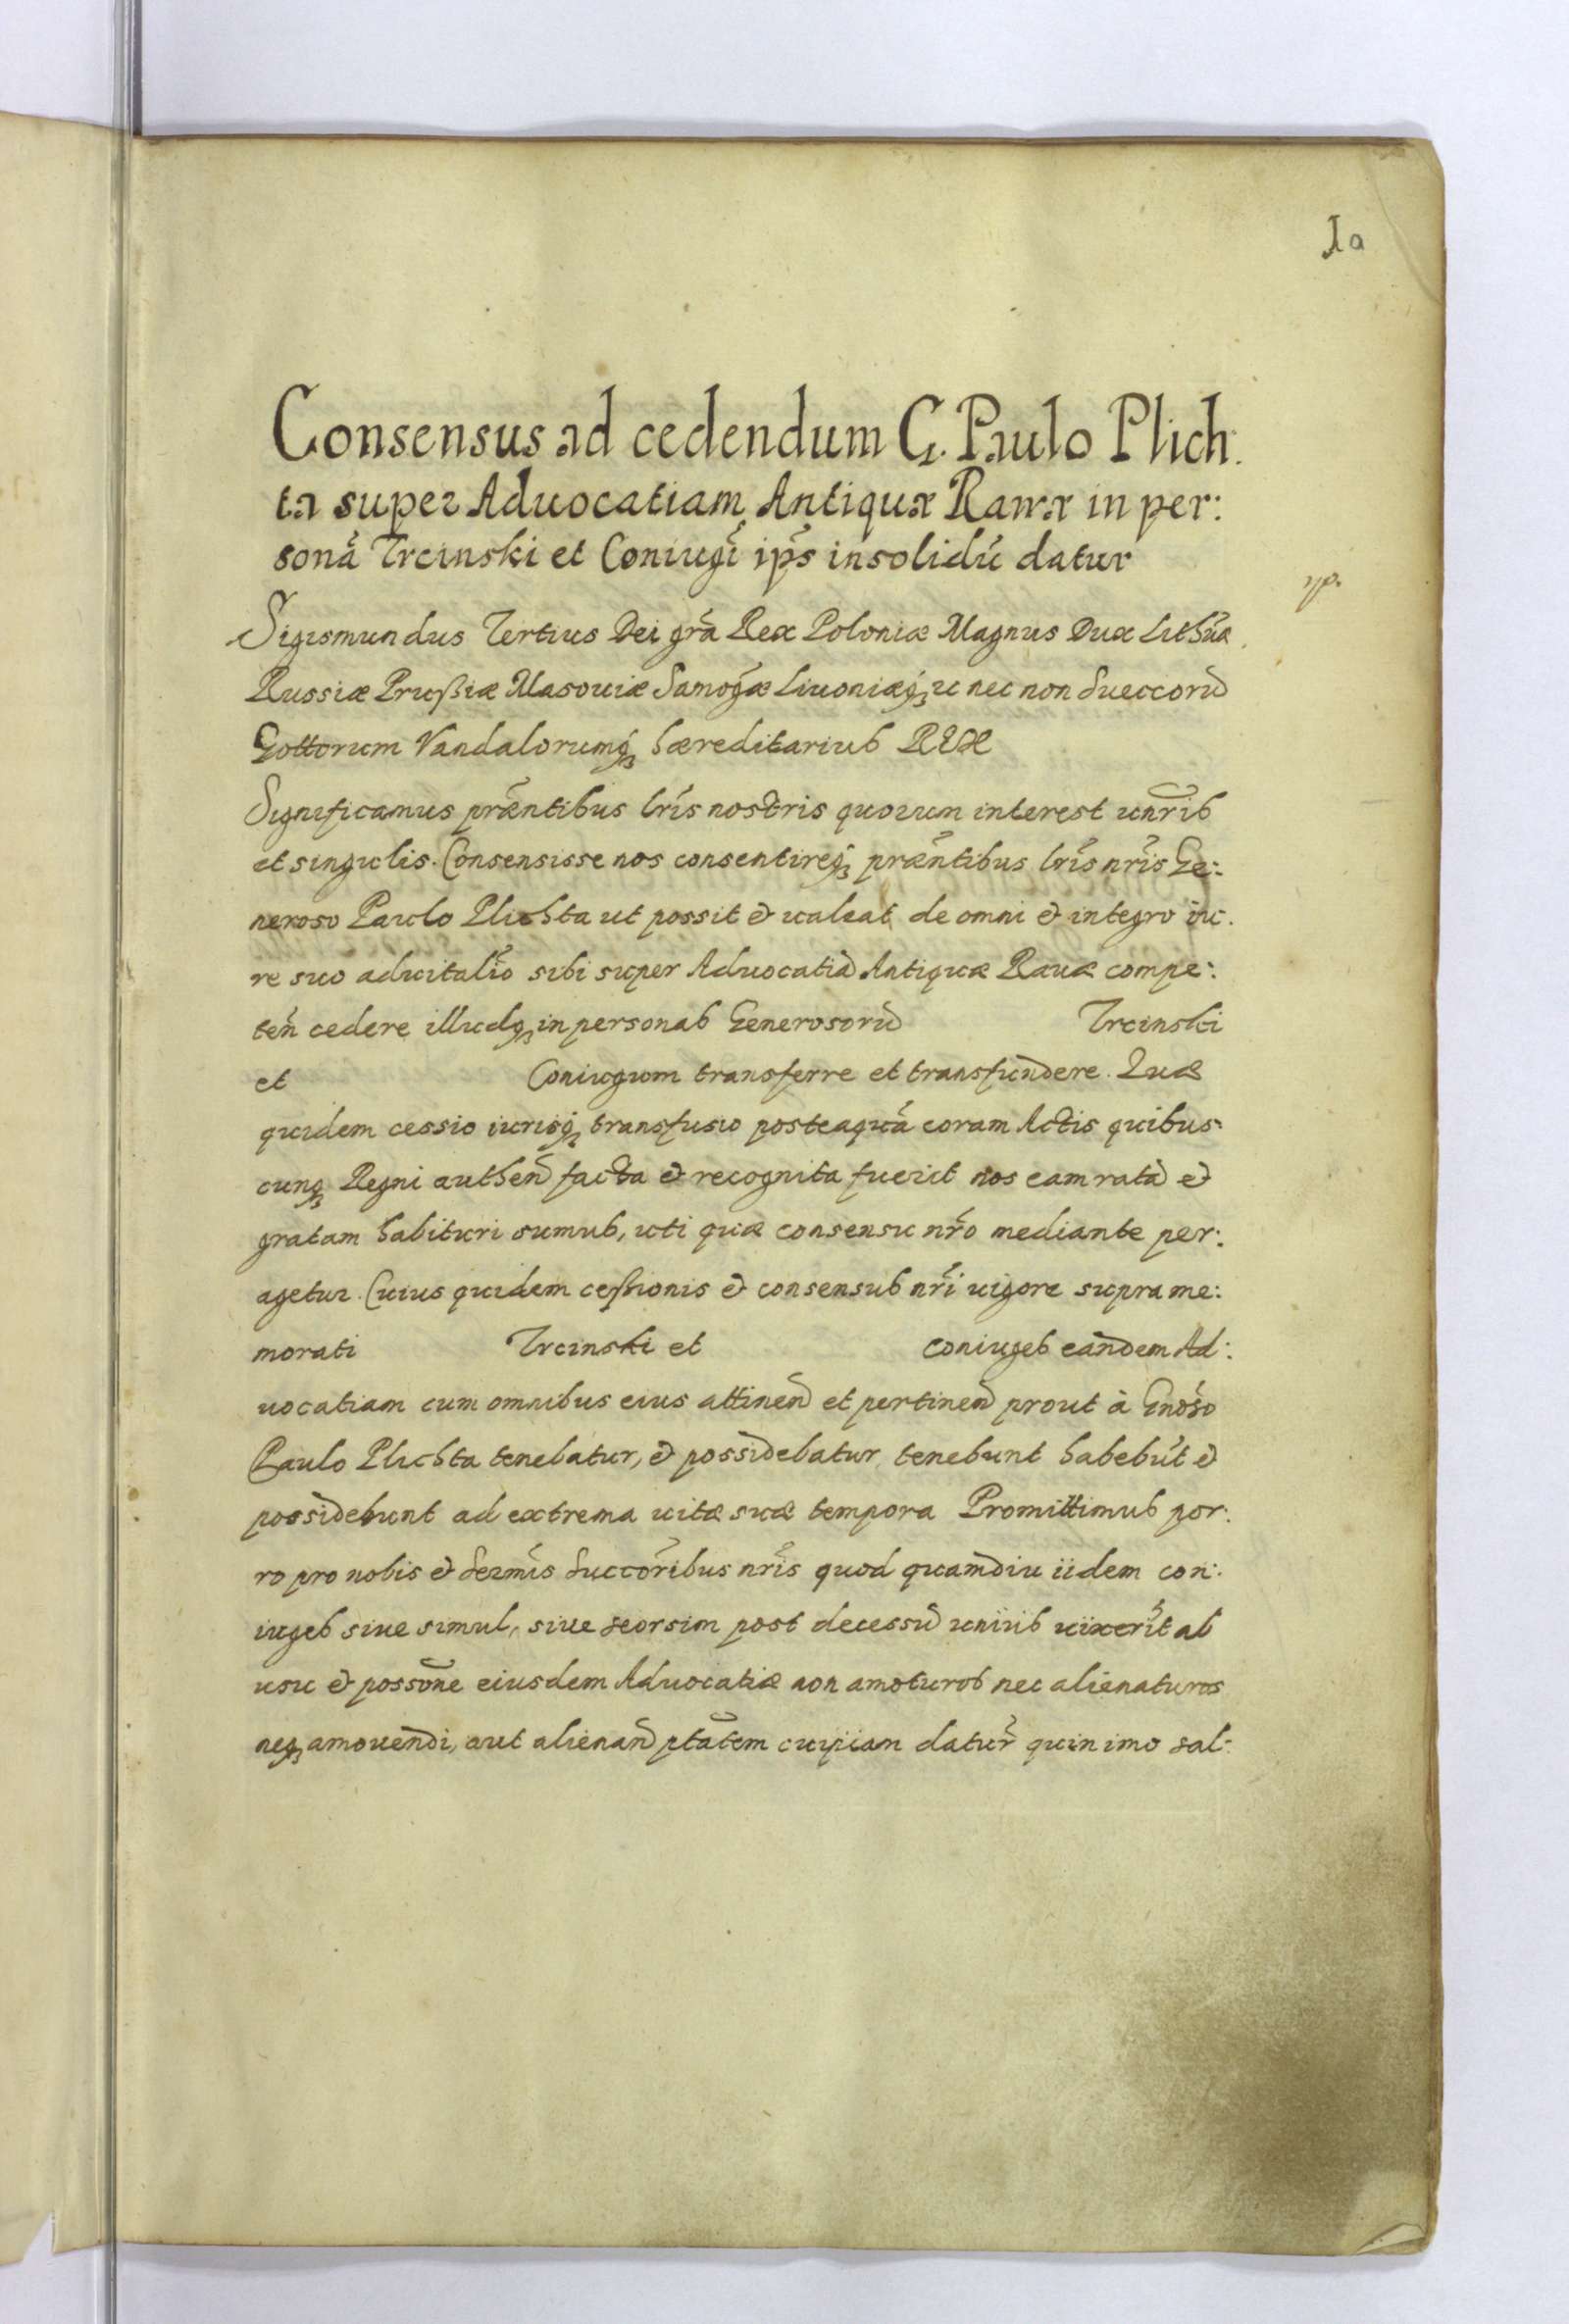 Ja
Consensus ad cedendum G. Paulo Plich.
ta super Aduocatiam Antiquæ Rawæ in per:
sonā Trcinski et Coniugī ip̄s insolidū datur
Sigismundus Tertius Dei grā Rex Poloniæ Magnus Dux Lithūæ.
Russiæ Prußiæ Masouiæ Samog̃æ Liuoniæq; &c nec non Sueccorū
Gottorum Vandalorumq; hæreditarius REX
Significamus præntibus lr̄is nostris quorum interest unr̄is
et singulis. Consensisse nos consentireq; præntibus lr̄is nr̄is Ge:
neroso Paulo Plichta ut possit & ualeat de omni & integro iu:
re suo aduitalīo sibi super Aduocatiā Antiquæ Rauæ compe:
teñ cedere illudq; in personas Generosorū Trcinski
et Coniugum transferre et transfundere. Quæ
quidem cessio iurisq; transfusio posteaquā coram Actis quibus:
cunq; Regni autheñ facta & recognita fuerit nos eam ratā &
gratam habituri sumus, uti quæ consensu nr̄o mediante per:
agetur. Cuius quidem ceßionis & consensus nr̄i uigore supra me:
morati Trcinski et coniuges eandem Ad:
uocatiam cum omnibus eius attineñ et pertineñ prout à Gnōso
Paulo Plichta tenebatur, & possidebatur tenebunt habebūt &
possidebunt ad extrema uitæ suæ tempora Promittimus por:
ro pro nobis & Serm̄is Succōribus nr̄is quod quamdiu iidem con:
iuges siue simul, siue seorsim post decessū unius uixerīt ab
usu & possōne eiusdem Aduocatiæ non amoturos nec alienaturos
neq; amouendi, aut alienañ ptātem cuipiam datur̄ quin imo sal: